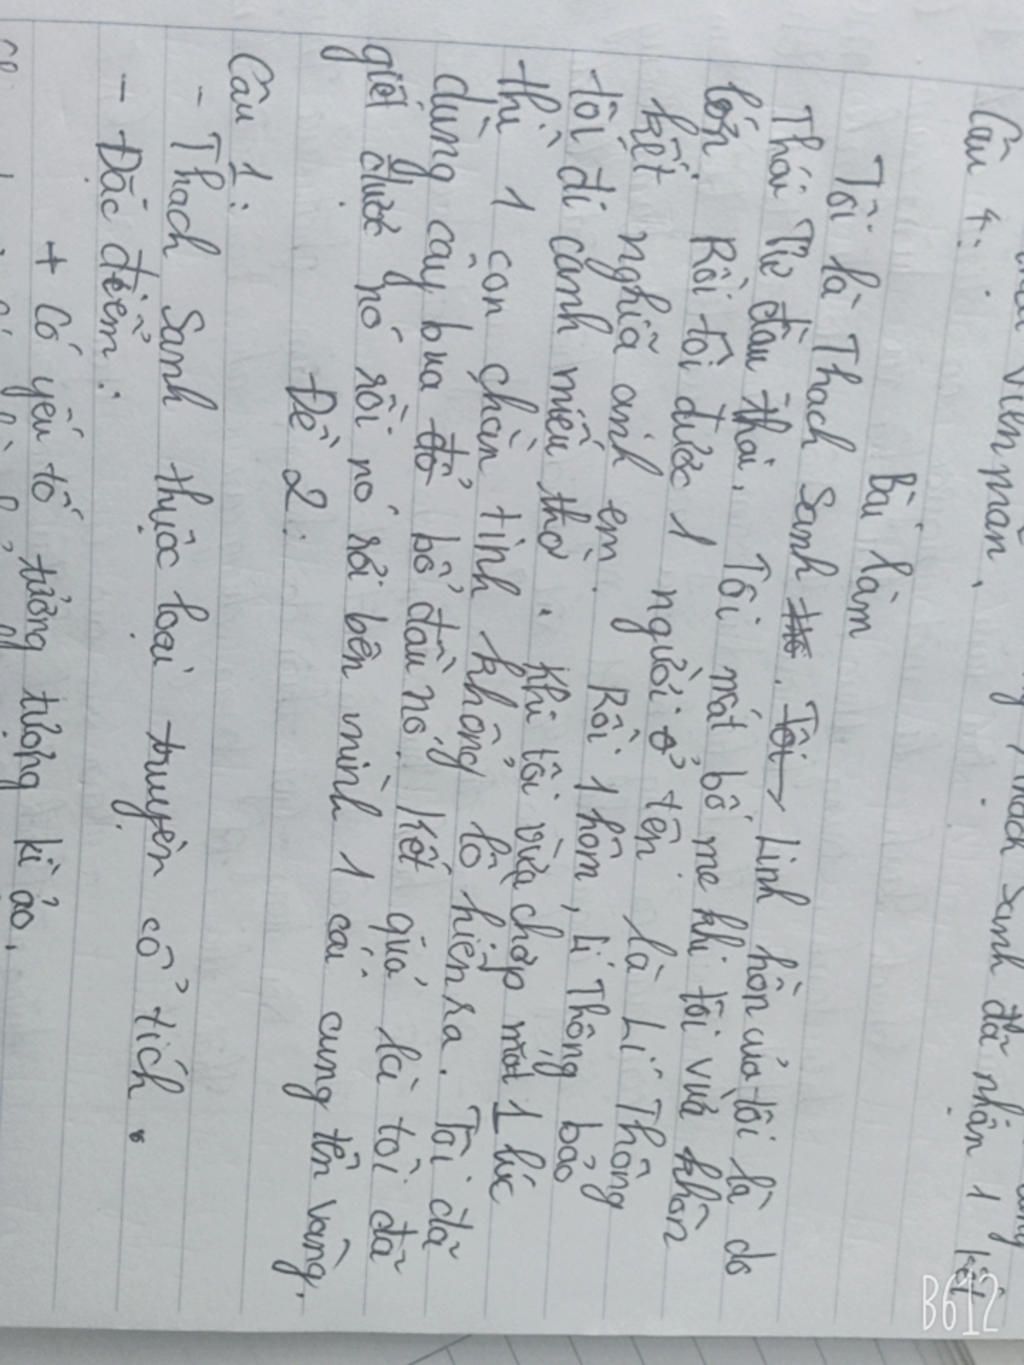 Thạch Sanh đã nhận 1 kết
viên mãn.
Câu 4:
Bài làm
Tôi là Thạch Sanh. Linh hồn của tôi là do
Thái Tử đầu thai. Tôi mất bố mẹ khi tôi vừa khôn
lớn. Rồi tôi được 1 người ở tên là Lí Thông
kết nghĩa anh em. Rồi 1 hôm, Lí Thông bảo
tôi đi canh miếu thờ. Khi tôi vừa chợp mắt 1 lúc
thì 1 con chằn tinh khổng lồ hiện ra. Tôi đã
dùng cây bua để bổ đầu nó. Kết quả là tôi đã
giết được nó rồi nó rơi bên mình 1 cái cung tên vàng.
Đề 2:
Câu 1:
- Thạch Sanh thuộc loại truyện cổ tích.
- Đặc điểm:
+ Có yếu tố tưởng tượng kì ảo.
B612